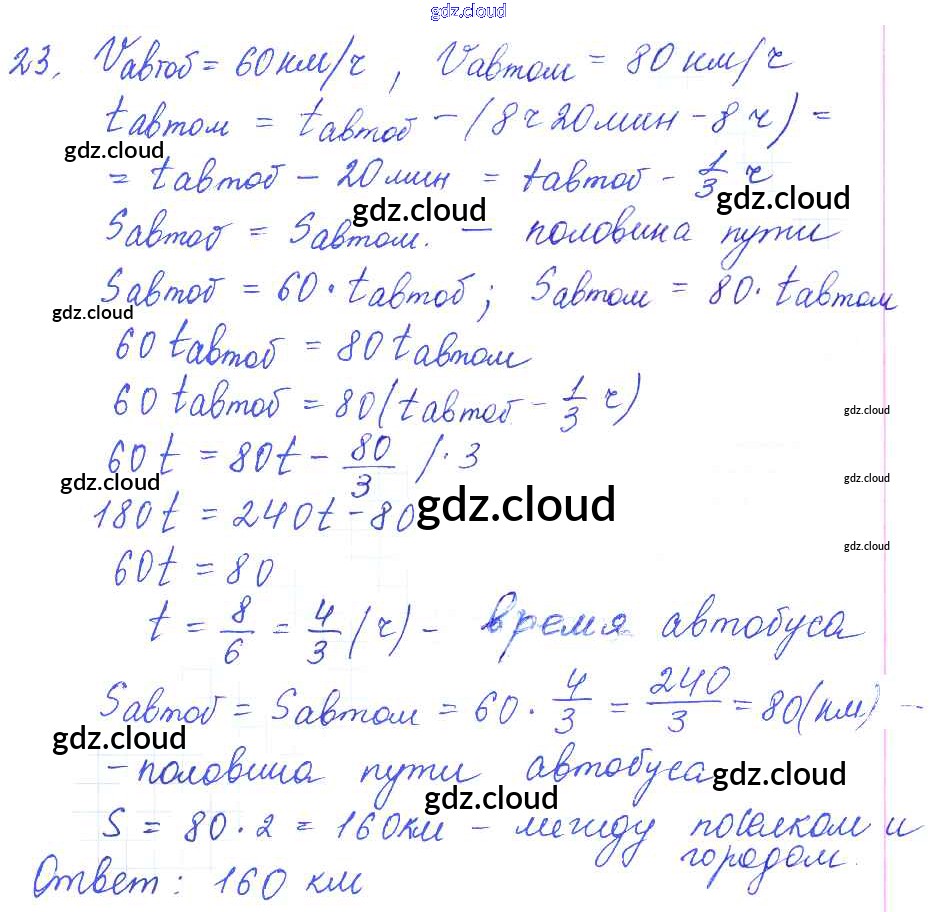 gdz.cloud
23. Vавтоб = 60 км/ч, Vавтом = 80 км/ч
tавтом = tавтоб − (8 ч 20 мин − 8 ч) =
gdz.cloud
= tавтоб − 20 мин = tавтоб − 1/3 ч
gdz.cloud gdz.cloud
Sавтоб = Sавтом. − половина пути
Sавтоб = 60 · tавтоб; Sавтом = 80 · tавтом
gdz.cloud
60 tавтоб = 80 tавтом
60 tавтоб = 80(tавтоб − 1/3 ч)
gdz.cloud
60t = 80t − 80/3 /· 3
gdz.cloud gdz.cloud
180t = 240t − 80
gdz.cloud
60t = 80
gdz.cloud
t = 8/6 = 4/3 (ч) − время автобуса
Sавтоб = Sавтом = 60 · 4/3 = 240/3 = 80(км) −
gdz.cloud
− половина пути автобуса
gdz.cloud gdz.cloud
S = 80 · 2 = 160км − между поселком и
городом.
Ответ: 160 км